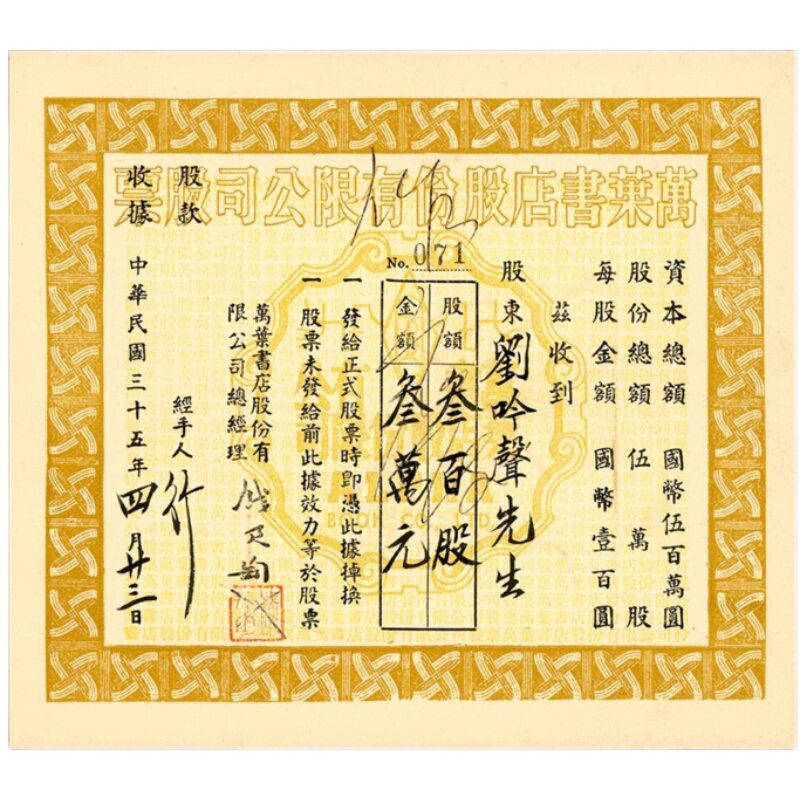 萬葉書店股份有限公司股票
股款收據
No. 071
資本總額 國幣伍百萬圓
股份總額 伍萬股
每股金額 國幣壹百圓
茲收到
股東劉吟聲先生
股額 叁百股
金額 叁萬元
一 發給正式股票時即憑此據掉換
一 股票未發給前此據效力等於股票
萬葉書店股份有限公司總經理 錢君匋
經手人
中華民國三十五年四月廿三日